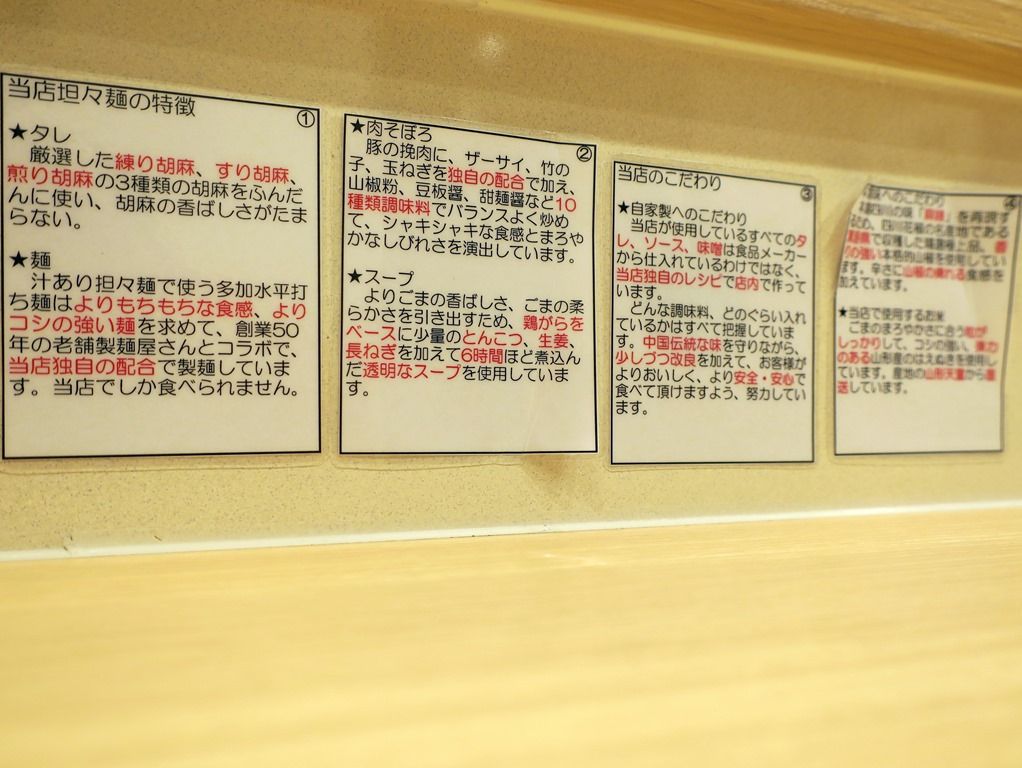 当店坦々麺の特徴
①
★タレ
厳選した練り胡麻、すり胡麻、
煎り胡麻の3種類の胡麻をふんだ
んに使い、胡麻の香ばしさがたま
らない。
★麺
汁あり担々麺で使う多加水平打
ち麺はよりもちもちな食感、より
コシの強い麺を求めて、創業50
年の老舗製麺屋さんとコラボで、
当店独自の配合で製麺していま
す。当店でしか食べられません。
②
★肉そぼろ
豚の挽肉に、ザーサイ、竹の
子、玉ねぎを独自の配合で加え、
山椒粉、豆板醤、甜麺醤など10
種類調味料でバランスよく炒め
て、シャキシャキな食感とまろや
かなしびれさを演出しています。
★スープ
よりごまの香ばしさ、ごまの柔
らかさを引き出すため、鶏がらを
ベースに少量のとんこつ、生姜、
長ねぎを加えて6時間ほど煮込ん
だ透明なスープを使用していま
す。
当店のこだわり
③
★自家製へのこだわり
当店が使用しているすべてのタ
レ、ソース、味噌は食品メーカー
から仕入れているわけではなく、
当店独自のレシピで店内で作って
います。
どんな調味料、どのぐらい入れ
ているかはすべて把握していま
す。中国伝統な味を守りながら、
少しづつ改良を加えて、お客様が
よりおいしく、より安全・安心で
食べて頂けますよう、努力してい
ます。
④
へのこだわり
の味「麻辣」を再現す
るため、四川花椒の名産地である
で収穫した厳選極上品。
の強い本格的山椒を使用してい
ます。辛さに山椒の痺れる食感を
加えています。
★当店で使用するお米
ごまのまろやかさに合う粒が
しっかりして、コシの強い、
のある山形産のはえぬきを使用し
ています。産地の山形天童から直
送しています。